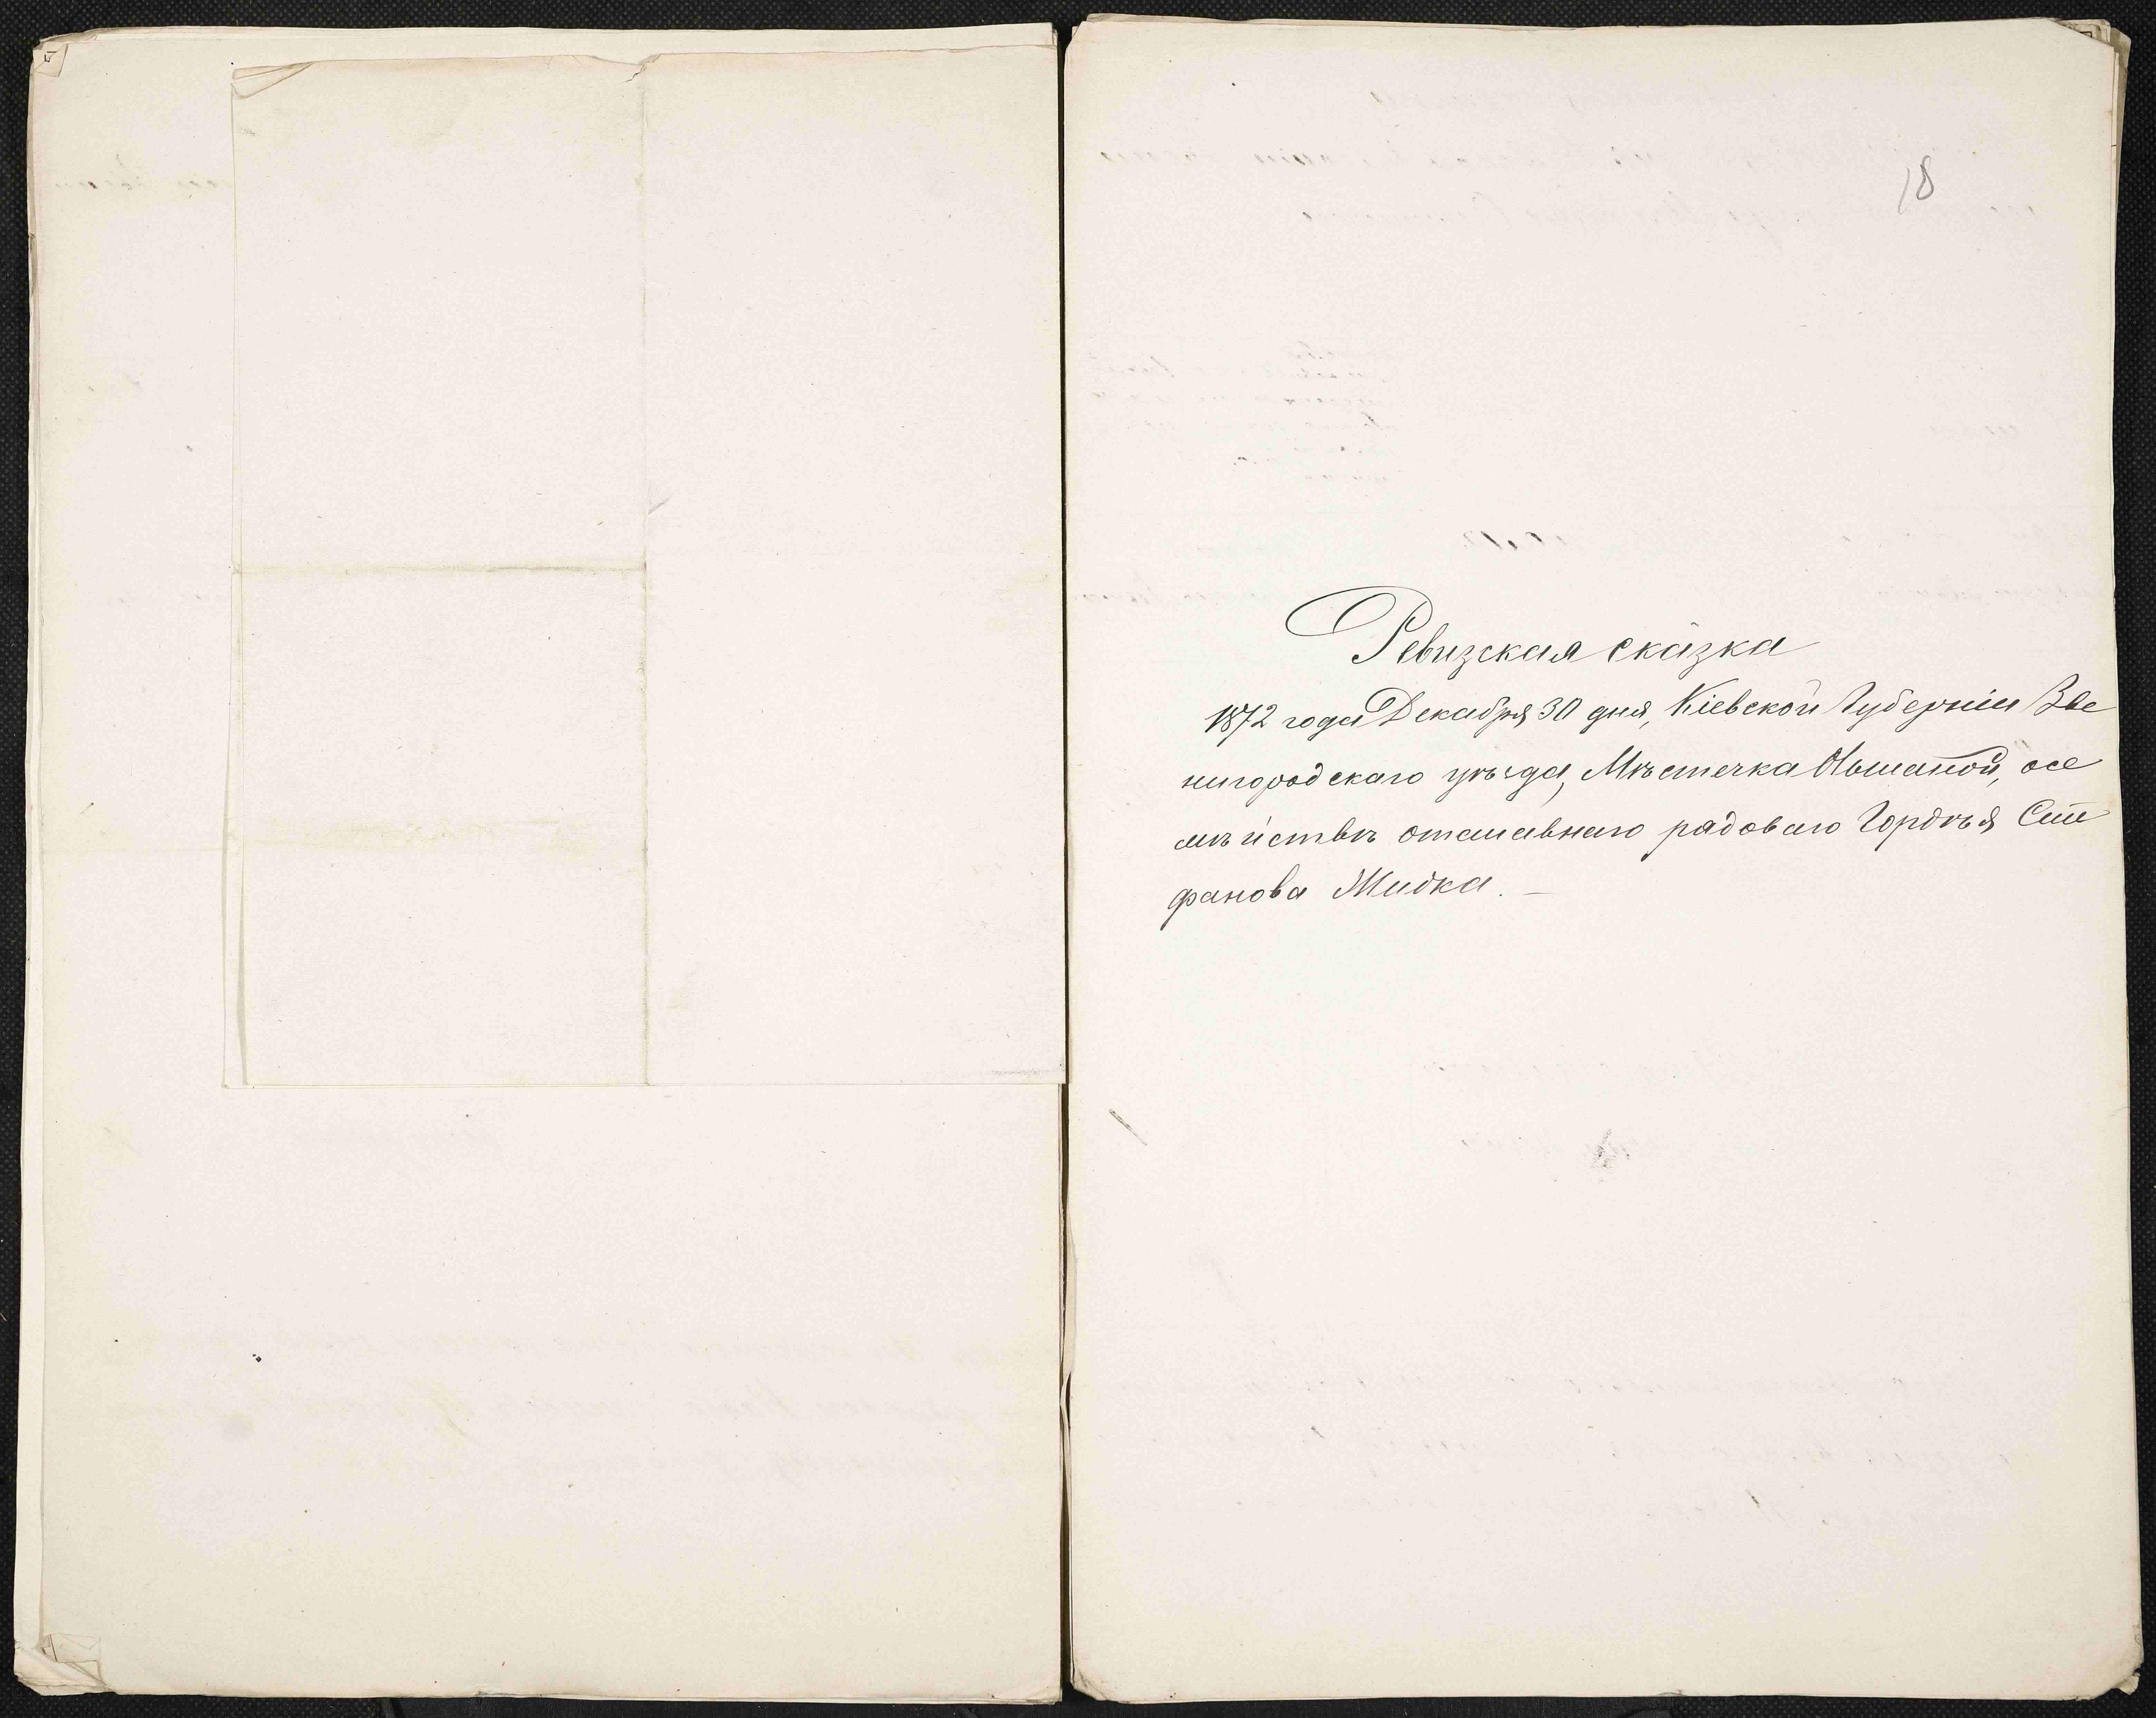 18
Ревизская сказка
1872 года Декабря 30 дня, Кіевской Губерніи Зве
нигородскаго уѣзда, Мѣстечка Ольшаной, о се
мѣйствѣ отставнаго рядоваго Гордѣя Сте
фанова Жидка. —